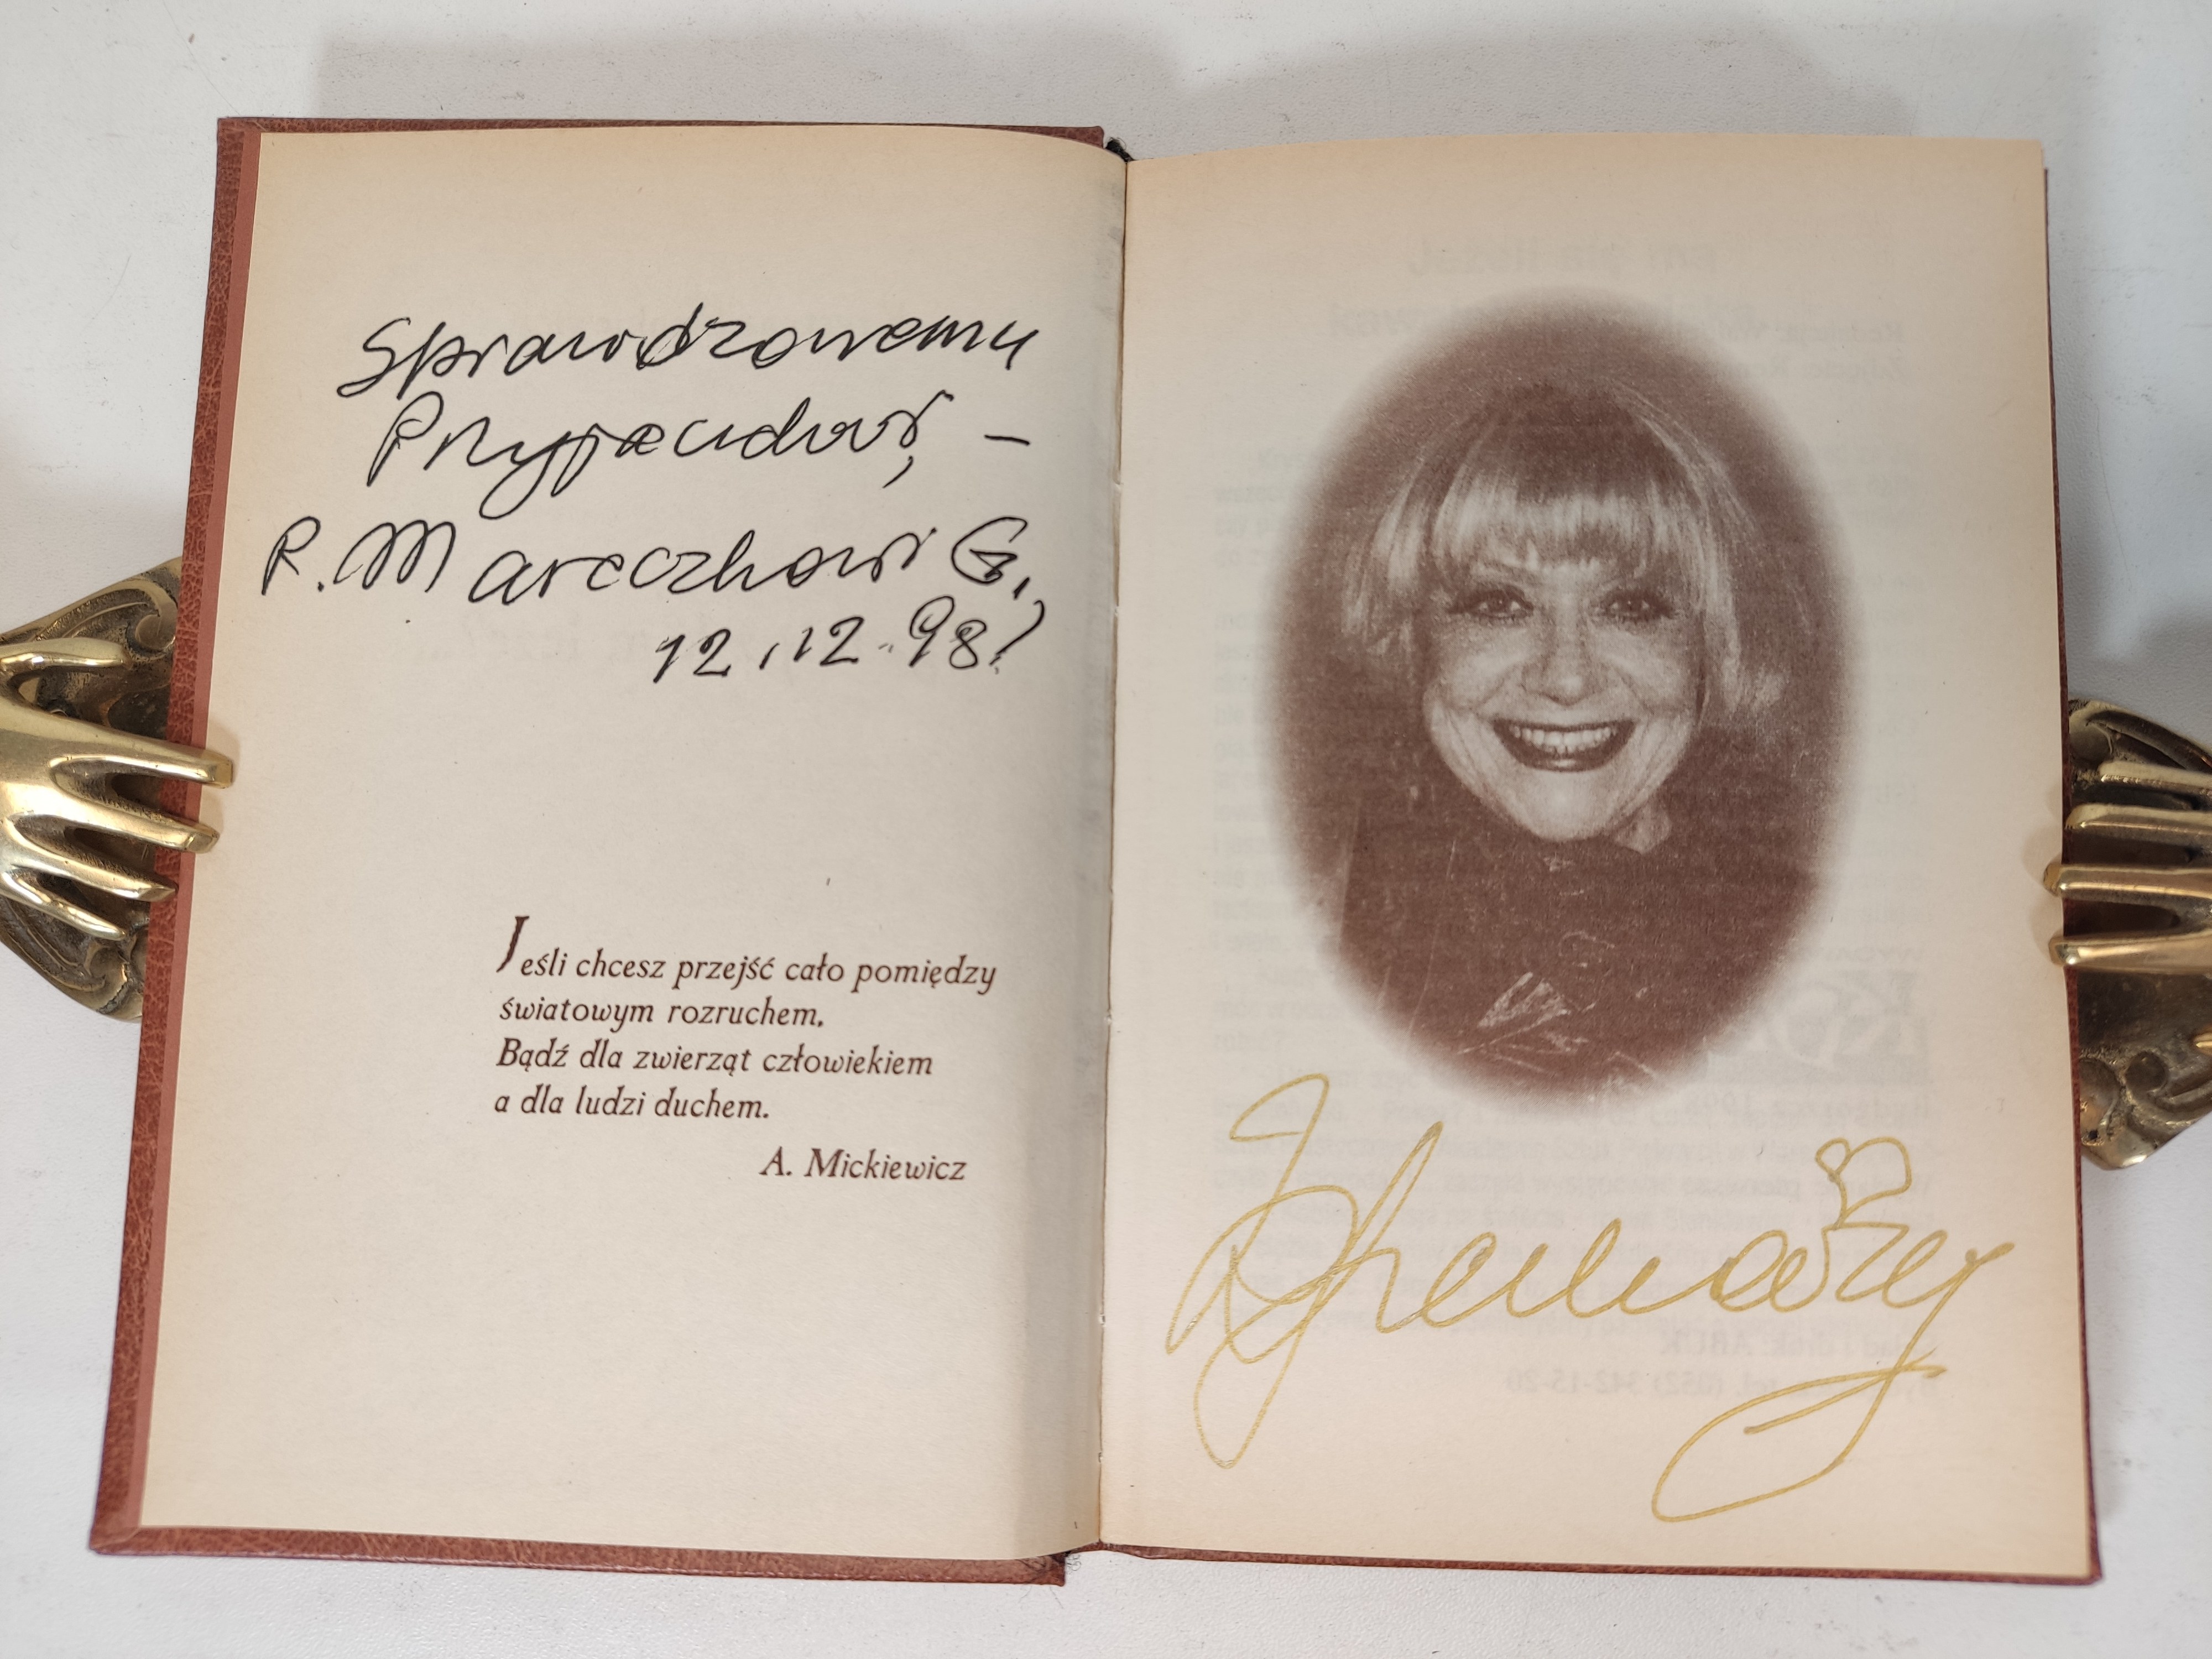 Sprawdzonemu
Przyjacielowi, –
R. Mareczkowi G.
12.12.98!
Jeśli chcesz przejść cało pomiędzy
światowym rozruchem,
Bądź dla zwierząt człowiekiem
a dla ludzi duchem.
A. Mickiewicz